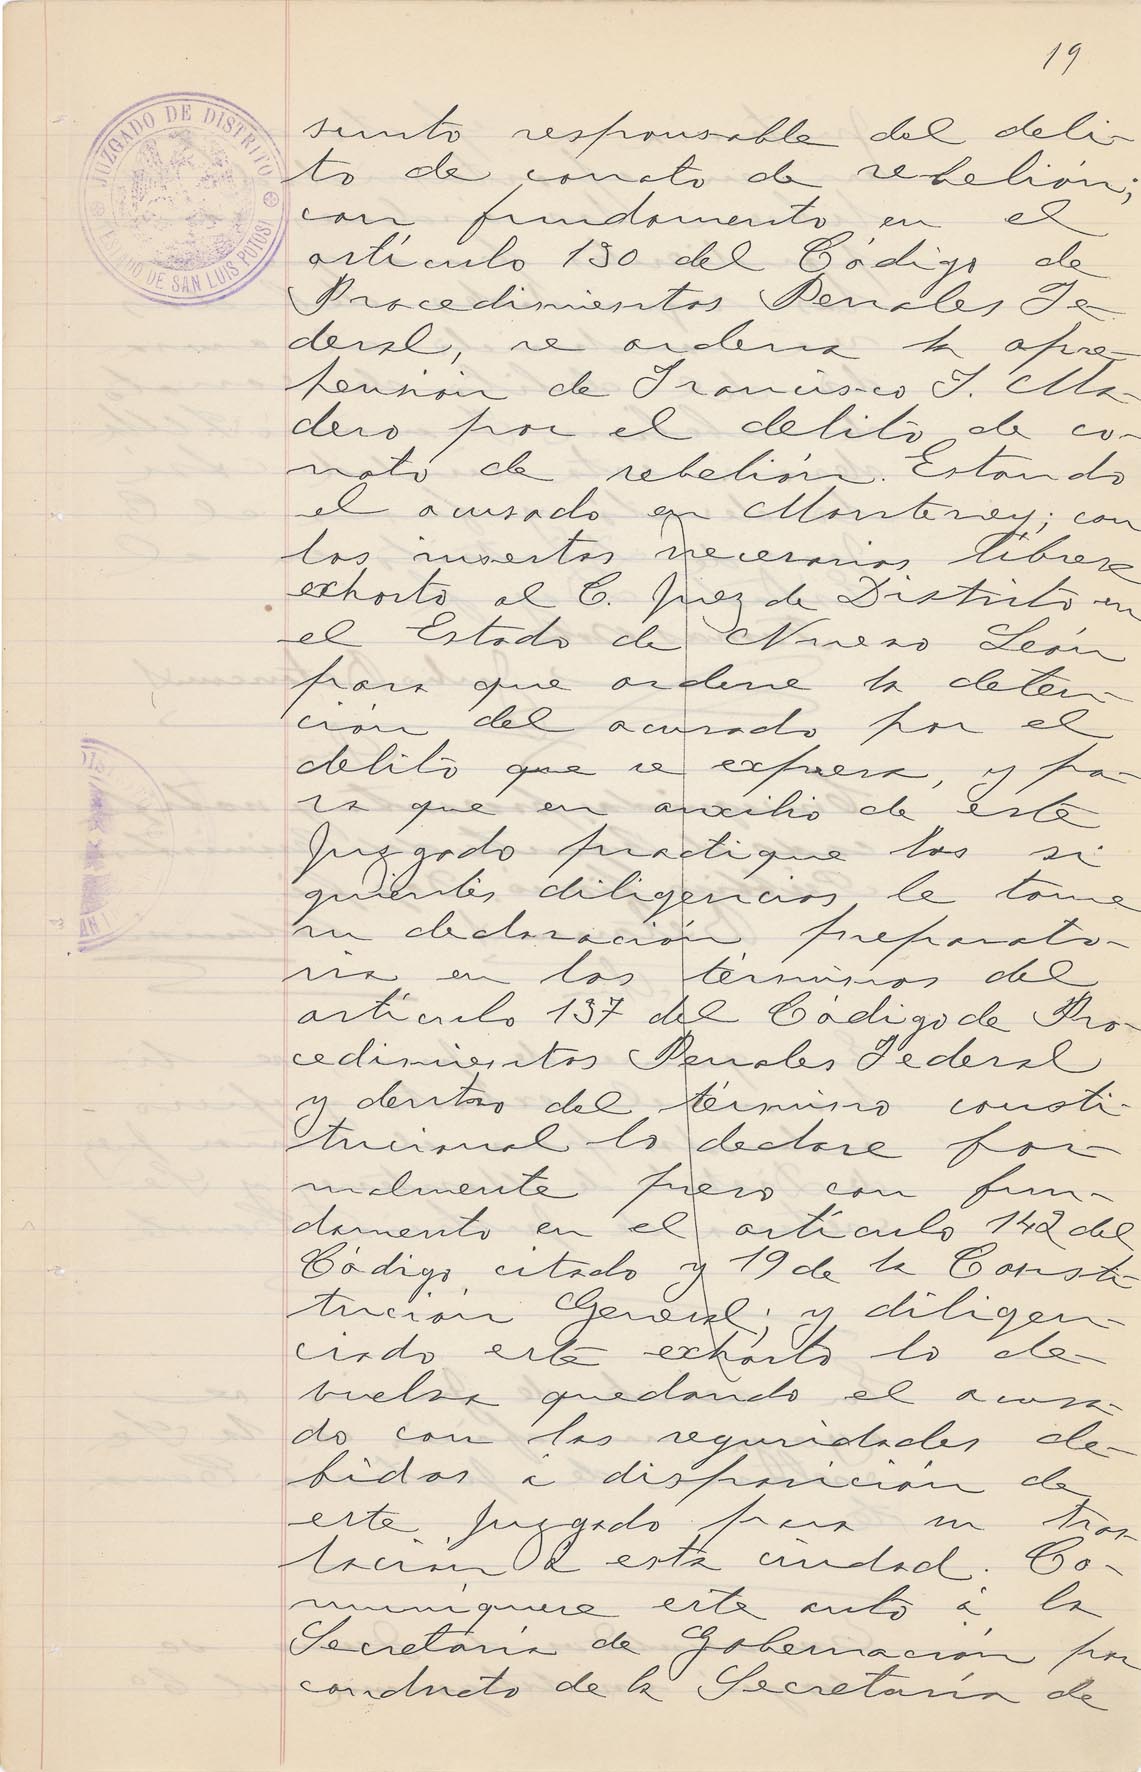 19
JUZGADO DE DISTRITO
ESTADO DE SAN LUIS POTOSI
sunto responsable del deli-
to de conato de rebelión;
con fundamento en el
artículo 130 del Código de
Procedimientos Penales Fe-
deral, se ordena la apre-
hensión de Francisco I. Ma-
dero por el delito de co-
nato de rebelión. Estando
el acusado en Monterrey; con
los insertos necesarios líbrese
exhorto al C. Juez de Distrito en
el Estado de Nuevo León
para que ordene la deten-
ción del acusado por el
delito que se expresa, y pa-
ra que en auxilio de este
Juzgado practique las si
guientes diligencias le tome
su declaración preparato-
ria en los términos del
artículo 137 del Código de Pro-
cedimientos Penales Federal
y dentro del término consti-
tucional lo declare for-
malmente preso con fun-
damento en el artículo 142 del
Código citado y 19 de la Consti-
tución General; y diligen-
ciado este exhorto lo de-
vuelva quedando el acusa-
do con las seguridades de-
bidas á disposición de
este Juzgado para su tras
lación á esta ciudad. Co-
muníquese este auto á la
Secretaría de Gobernación por
conducto de la Secretaría de